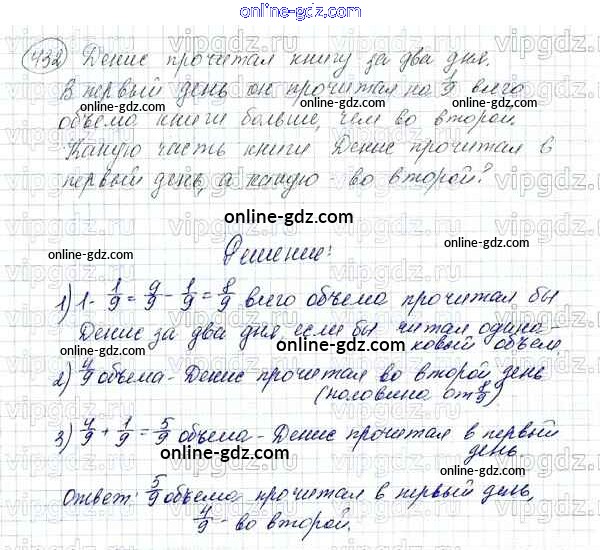 online-gdz.com
432 Денис прочитал книгу за два дня.
В первый день он прочитал на 1/9 всего
объема книги больше, чем во второй.
Какую часть книги Денис прочитал в
первый день, а какую - во второй?
online-gdz.com
Решение:
1) 1 - 1/9 = 9/9 - 1/9 = 8/9 всего объема прочитал бы
Денис за два дня, если бы читал одина-
ковый объем.
2) 4/9 объема - Денис прочитал во второй день
(половина от 8/9)
3) 4/9 + 1/9 = 5/9 объема - Денис прочитал в первый
день
online-gdz.com
Ответ: 5/9 объема прочитал в первый день,
4/9 - во второй.